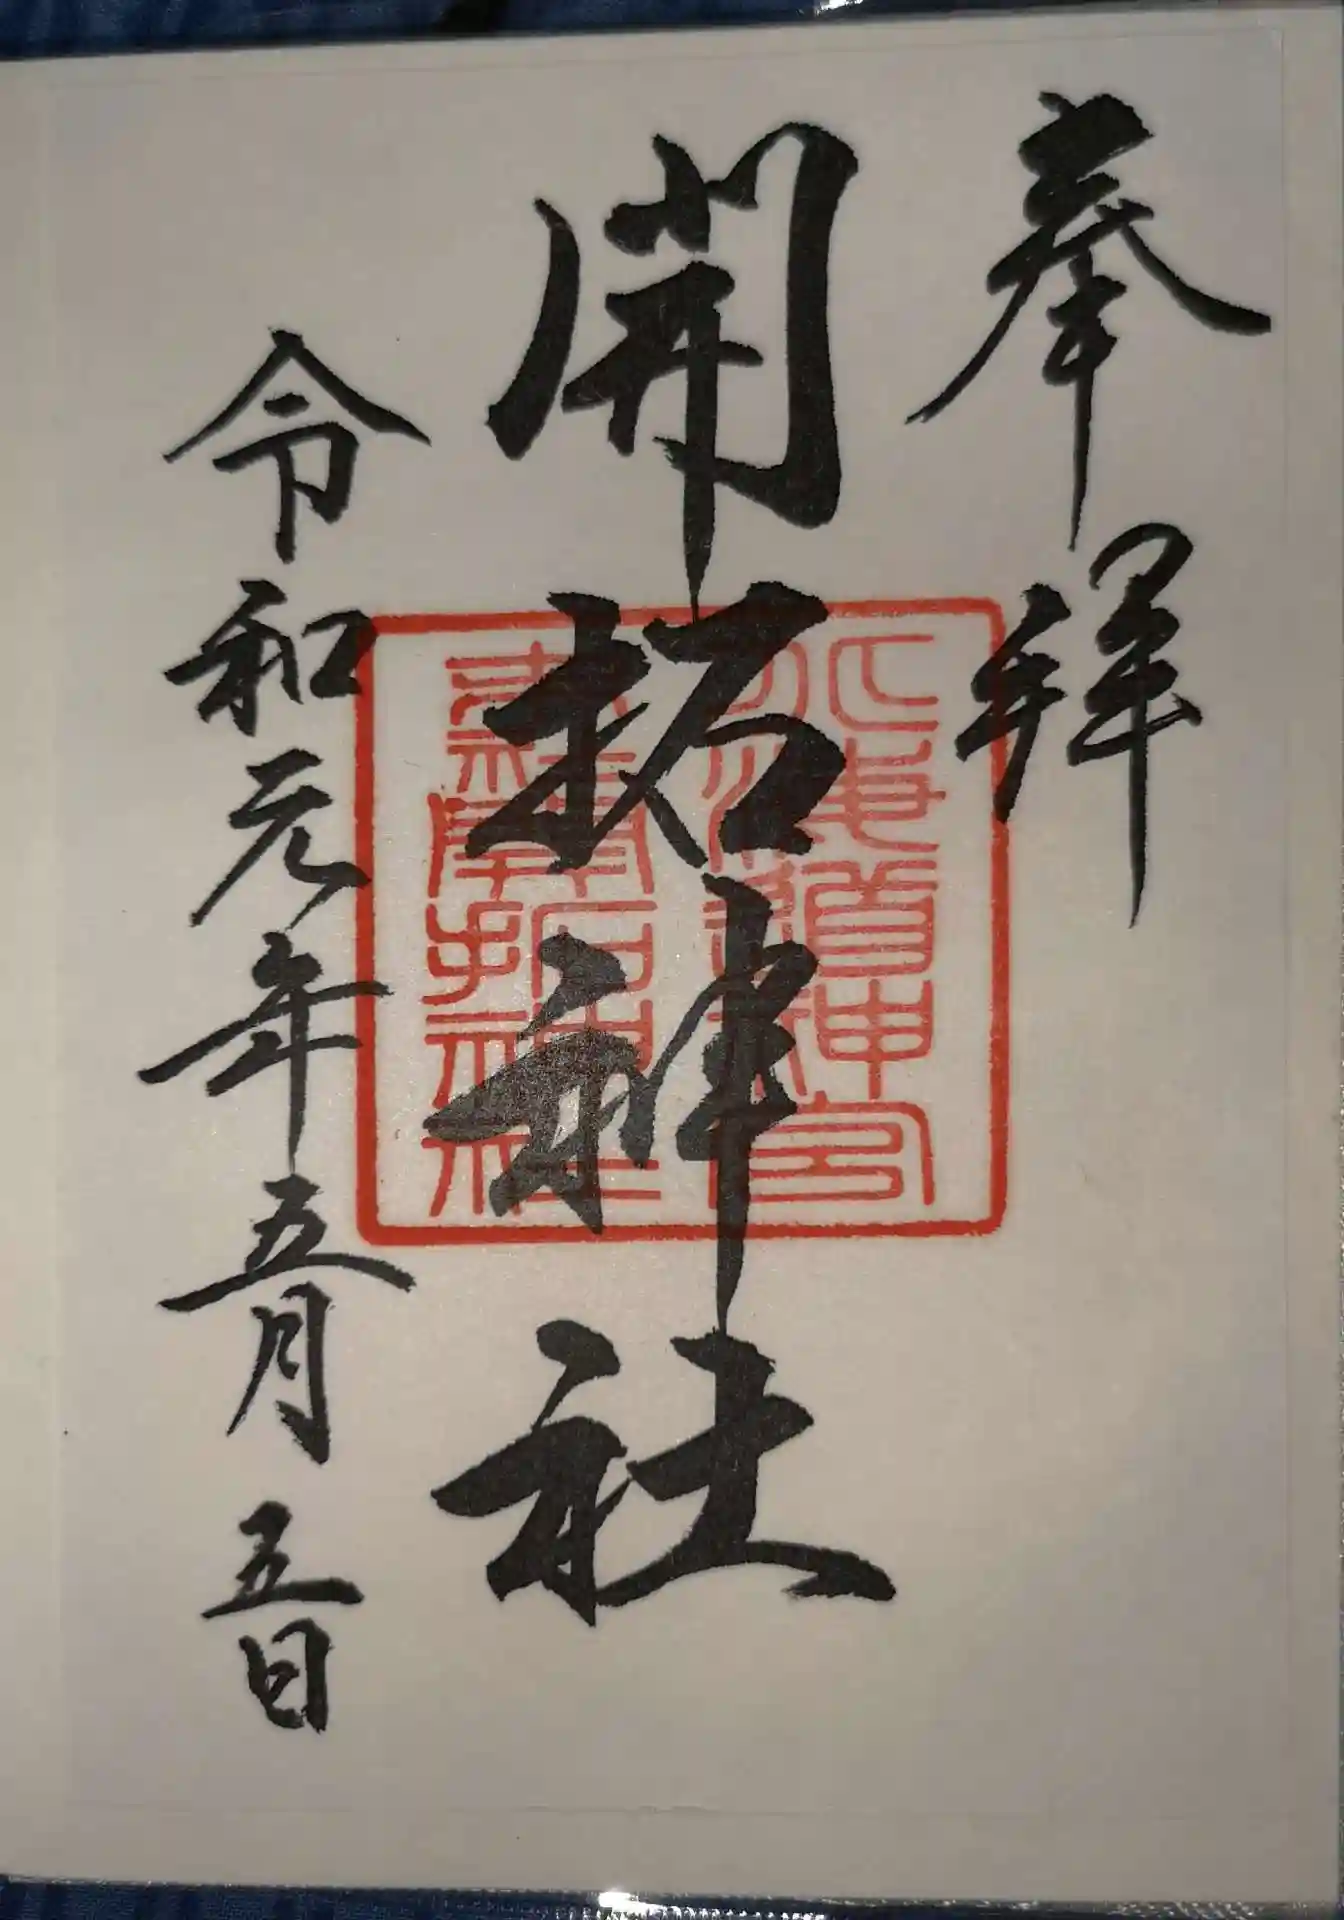 奉拝
開拓神社
北海道神宮
末社開拓神社
令和元年五月五日